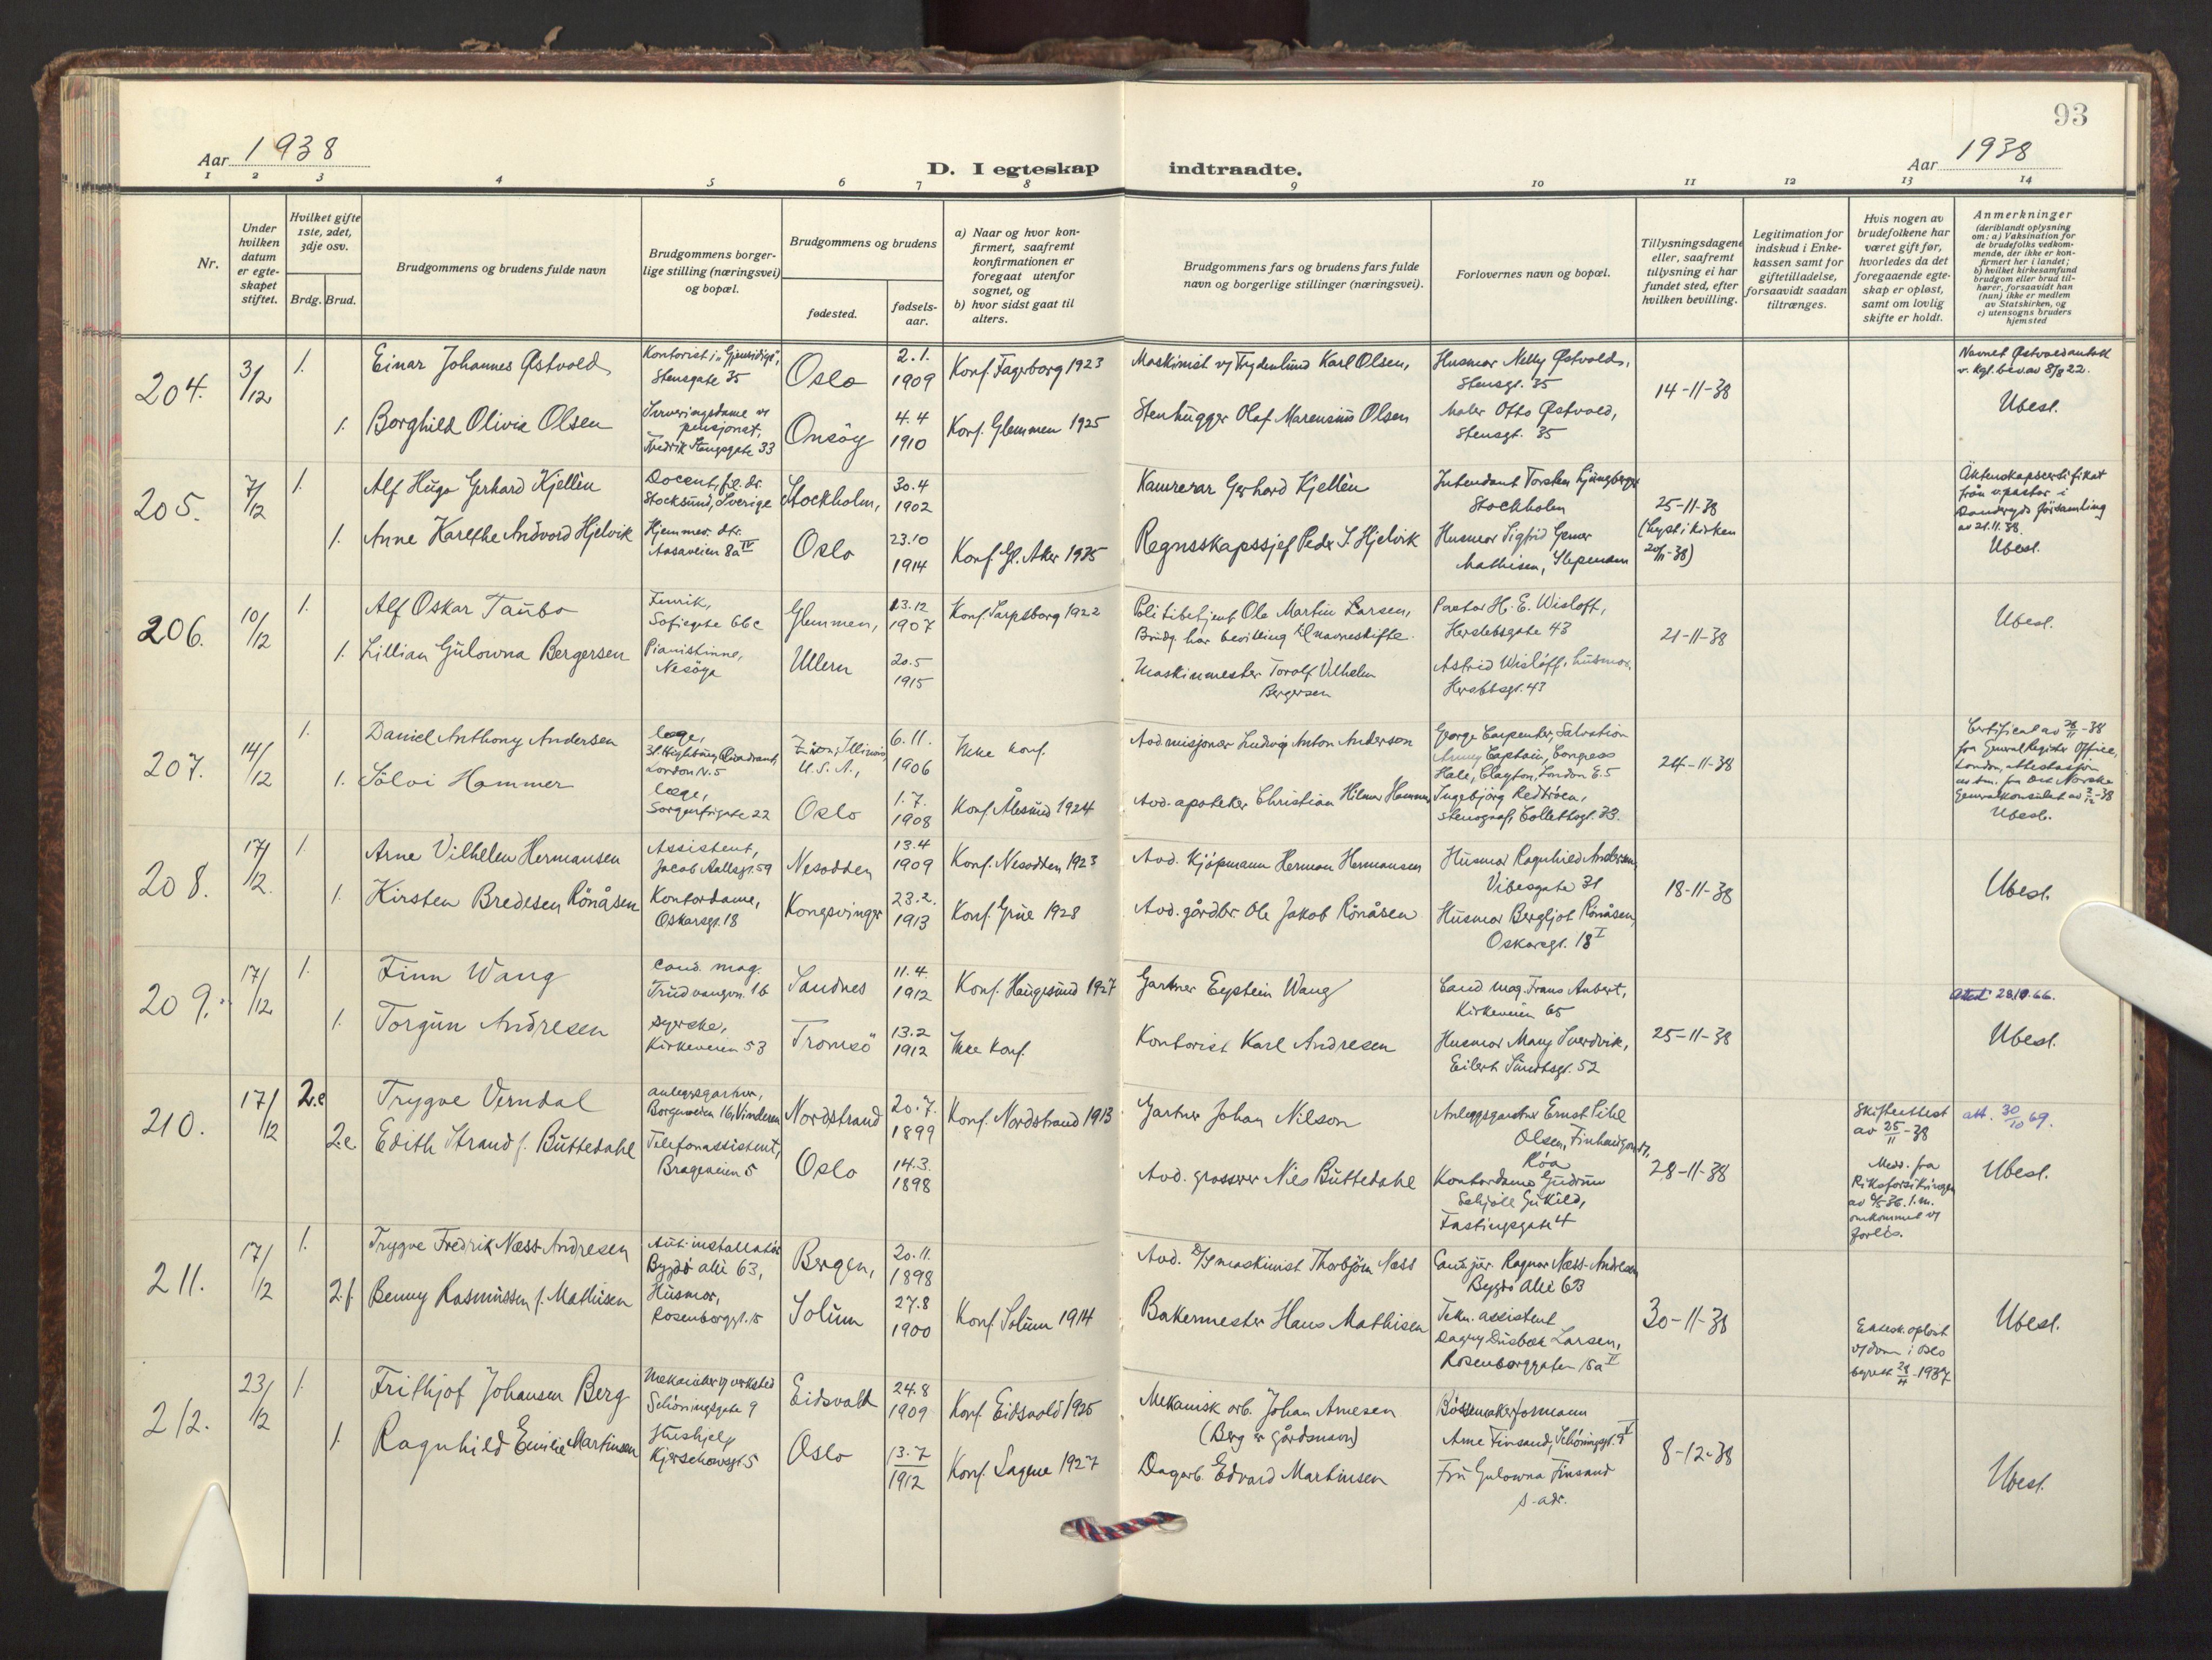 93
Aar 1938
D. I egteskap indtraadte.
Aar 1938
1 2 3 4 5 6 7 8 9 10 11 12 13 14
Nr.
Under hvilken datum er egte-skapet stiftet.
Hvilket gifte 1ste, 2det, 3dje osv.
Brdg. Brud.
Brudgommens og brudens fulde navn
Brudgommens borger-lige stilling (næringsvei) og bopæl.
Brudgommens og brudens
fødested.
fødsels-aar.
a) Naar og hvor kon-firmert, saafremt konfirmationen er foregaat utenfor sognet, og
b) hvor sidst gaat til alters.
Brudgommens fars og brudens fars fulde navn og borgerlige stillinger (næringsvei).
Forlovernes navn og bopæl.
Tillysningsdagene eller, saafremt tillysning ei har fundet sted, efter hvilken bevilling.
Legitimation for indskud i Enke-kassen samt for giftetilladelse, forsaavidt saadan tiltrænges.
Hvis nogen av brudefolkene har været gift før, hvorledes da det foregaaende egte-skap er opløst, samt om lovlig skifte er holdt.
Anmerkninger (deriblandt oplysning om: a) Vaksination for de brudefolks vedkom-mende, der ikke er kon-firmert her i landet; b) hvilket kirkesamfund brudgom eller brud til-hører, forsaavidt han (hun) ikke er medlem av Statskirken, og c) utensogns bruders hjemsted
204. 3/12 1. Einar Johannes Østvold
Kontorist i "Gjensidige",
Stensgate 35
Oslo 2.1. 1909 Konf. Fagerborg 1923
Maskinist v/ Frydenlund Karl Olsen,
Husmor Nelly Østvold,
Stensgt. 35
14-11-38
Navnet Østvold antatt
v. kgl. bev. av 8/8 22.
Ubesl.
1. Borghild Olivia Olsen
Serveringsdame v/
pensjonat,
Fredrik Stangsgate 33
Onsøy 4.4 1910 Konf. Glemmen 1925
Stenhugger Olaf Marensius Olsen
Maler Otto Østvold,
Stensgt. 35
205. 7/12 1. Alf Hugo Gerhard Kjellèn
Docent, fil. dr.
Stocksund, Sverige
Stockholm, 30.4 1902
Kamrerar Gerhard Kjellèn
Intendant Torsten Ljungberg
Stockholm
25-11-38
(Lyst i kirken
20/11-38)
Äktenskapscertifikat
från v. pastor i
Danderyds församling
av 21.11.38.
Ubesl.
1. Anne Karethe Andvord Hjelvik
Hjemmev. dtr.
Aasaveien 8a IV
Oslo 23.10 1914 Konf. Gl. Aker 1935
Regnsskapssjef Peder S. Hjelvik
Husmor Sigfrid
Mathisen, Slependen
206. 10/12 1. Alf Oskar Taubo
Fenrik,
Sofiegate 66c
Glemmen, 13.12 1907 Konf. Sarpsborg 1922
Politibetjent Ole Martin Larsen,
Brudg. har bevilling til navneskifte.
Pastor H. E. Wisloff,
Herslebsgate 43
21-11-38
Ubesl.
1. Lillian Gulowna Bergersen
Pianistinne,
Nesøya
Ullern 20.5 1915
Maskinmester Toralf Vilhelm
Bergersen
Astrid Wisløff, husmor.
Herslebsgt. 43
207. 14/12 1. Daniel Anthony Andersen
læge,
31. Highbury Quadrant,
London N. 5
Zion, Illinois,
U.S.A., 6.11. 1906 Ikke konf.
Avd. misjonær Ludvig Anton Anderson
George Carpenter, Salvation
Army Captain, Congress
Hall, Clapton, London E.5
24-11-38
Certificat av 26/11-38
fra General Register Office,
London, attestasjon
av s.m. fra Det Norske
Generalkonsulat av 2/12-38
Ubesl.
1. Sölvi Hammer
læge,
Sorgenfrigate 22
Oslo 1.7. 1908 Konf. Ålesund 1924
Avd. apoteker Christian Hilmar Hammer
Ingebjörg Redtröen,
stenograf, Collettsgt. 33.
208. 17/12. 1. Arne Vilhelm Hermansen
Assistent,
Jacob Aallsgt. 59
Nesodden 13.4 1909 Konf. Nesodden 1923
Avd. kjöpmann Herman Hermansen
Husmor Ragnhild Andersen
Vibesgate 31
18-11-38
Ubesl.
1. Kirsten Bredesen Rönåsen
Kontordame,
Oskarsgt. 18
Kongsvinger 23.2. 1913 Konf. Grue 1928
Avd. gårdbr. Ole Jakob Rönåsen
Husmor Bergljot Rönåsen,
Oskarsgt. 18 I
209. 17/12 1. Finn Wang
cand. mag.
Trudvangvn. 16
Sandnes 11.4. 1912 Konf. Haugesund 1927
Gartner Eystein Wang
Cand. mag. Frans Aubert,
Kirkeveien 65
25-11-38
Attest 28.10.66.
Ubesl.
1. Torgun Andresen
syerske,
Kirkeveien 53
Tromsö 13.2 1912 Ikke konf.
Kontorist Karl Andresen
Husmor Mary Sverdvik,
Eilert Sundtsgt. 52
210. 17/12 2.e Trygve Verndal
anleggsgartner,
Borgenveien 16, Vinderen
Nordstrand 20.7. 1899 Konf. Nordstrand 1913
Gartner Johan Nilson
Anleggsgartner Ernst Pihl
Olsen, Finhaugveien,
Röa
28-11-38
Skifteattest
av 25/11-38
att. 30/10 69.
Ubesl.
2.e. Edith Strand f. Buttedahl
Telefonassistent,
Brageveien 5
Oslo 14.3. 1898
Avd. grosserer Nils Buttedahl
Kontordame Gudrun
Schjöll Gukild,
Fastingsgate 4
Medd. fra
Riksforsikringen
omkommet v/
forlis.
211. 17/12 1. Trygve Fredrik Næss-Andresen
Aut. installatör
Bygdö allé 63,
Bergen, 20.11. 1898
Avd. D/S maskinist Thorbjörn Næss
Cand. jur. Ragnar Næss-Andresen
Bygdö Allé 63
30-11-38
Ubesl.
2.f. Benny Rasmussen f. Mathisen
Husmor,
Rosenborggt. 15
Solum 27.8 1900 Konf. Solum 1914
Bakermester Hans Mathisen
Tekn. assistent
Dagny Larsen,
Rosenborggaten 15a
Ektesk. oplöst
v/ dom i Oslo
byrett 1937
212. 23/12 1. Frithjof Johansen Berg
Mekaniker v/ verksted
Schöningsgate 9
Eidsvold 24.8 1909 Konf. Eidsvold 1925
Mekanisk arb. Johan Arnesen
(Berg er gårdsnavn)
Bössemakerformann
Arne Finsand, Schöningsgt. 9 V
8-12-38
Ubesl.
1. Ragnhild Emilie Martinsen
Hushjelp
Kjerschowsgt. 5
Oslo 13.7 1912 Konf. Sagene 1927
Dagarb. Edvard Martinsen
Fru Gulowna Finsand
s. adr.